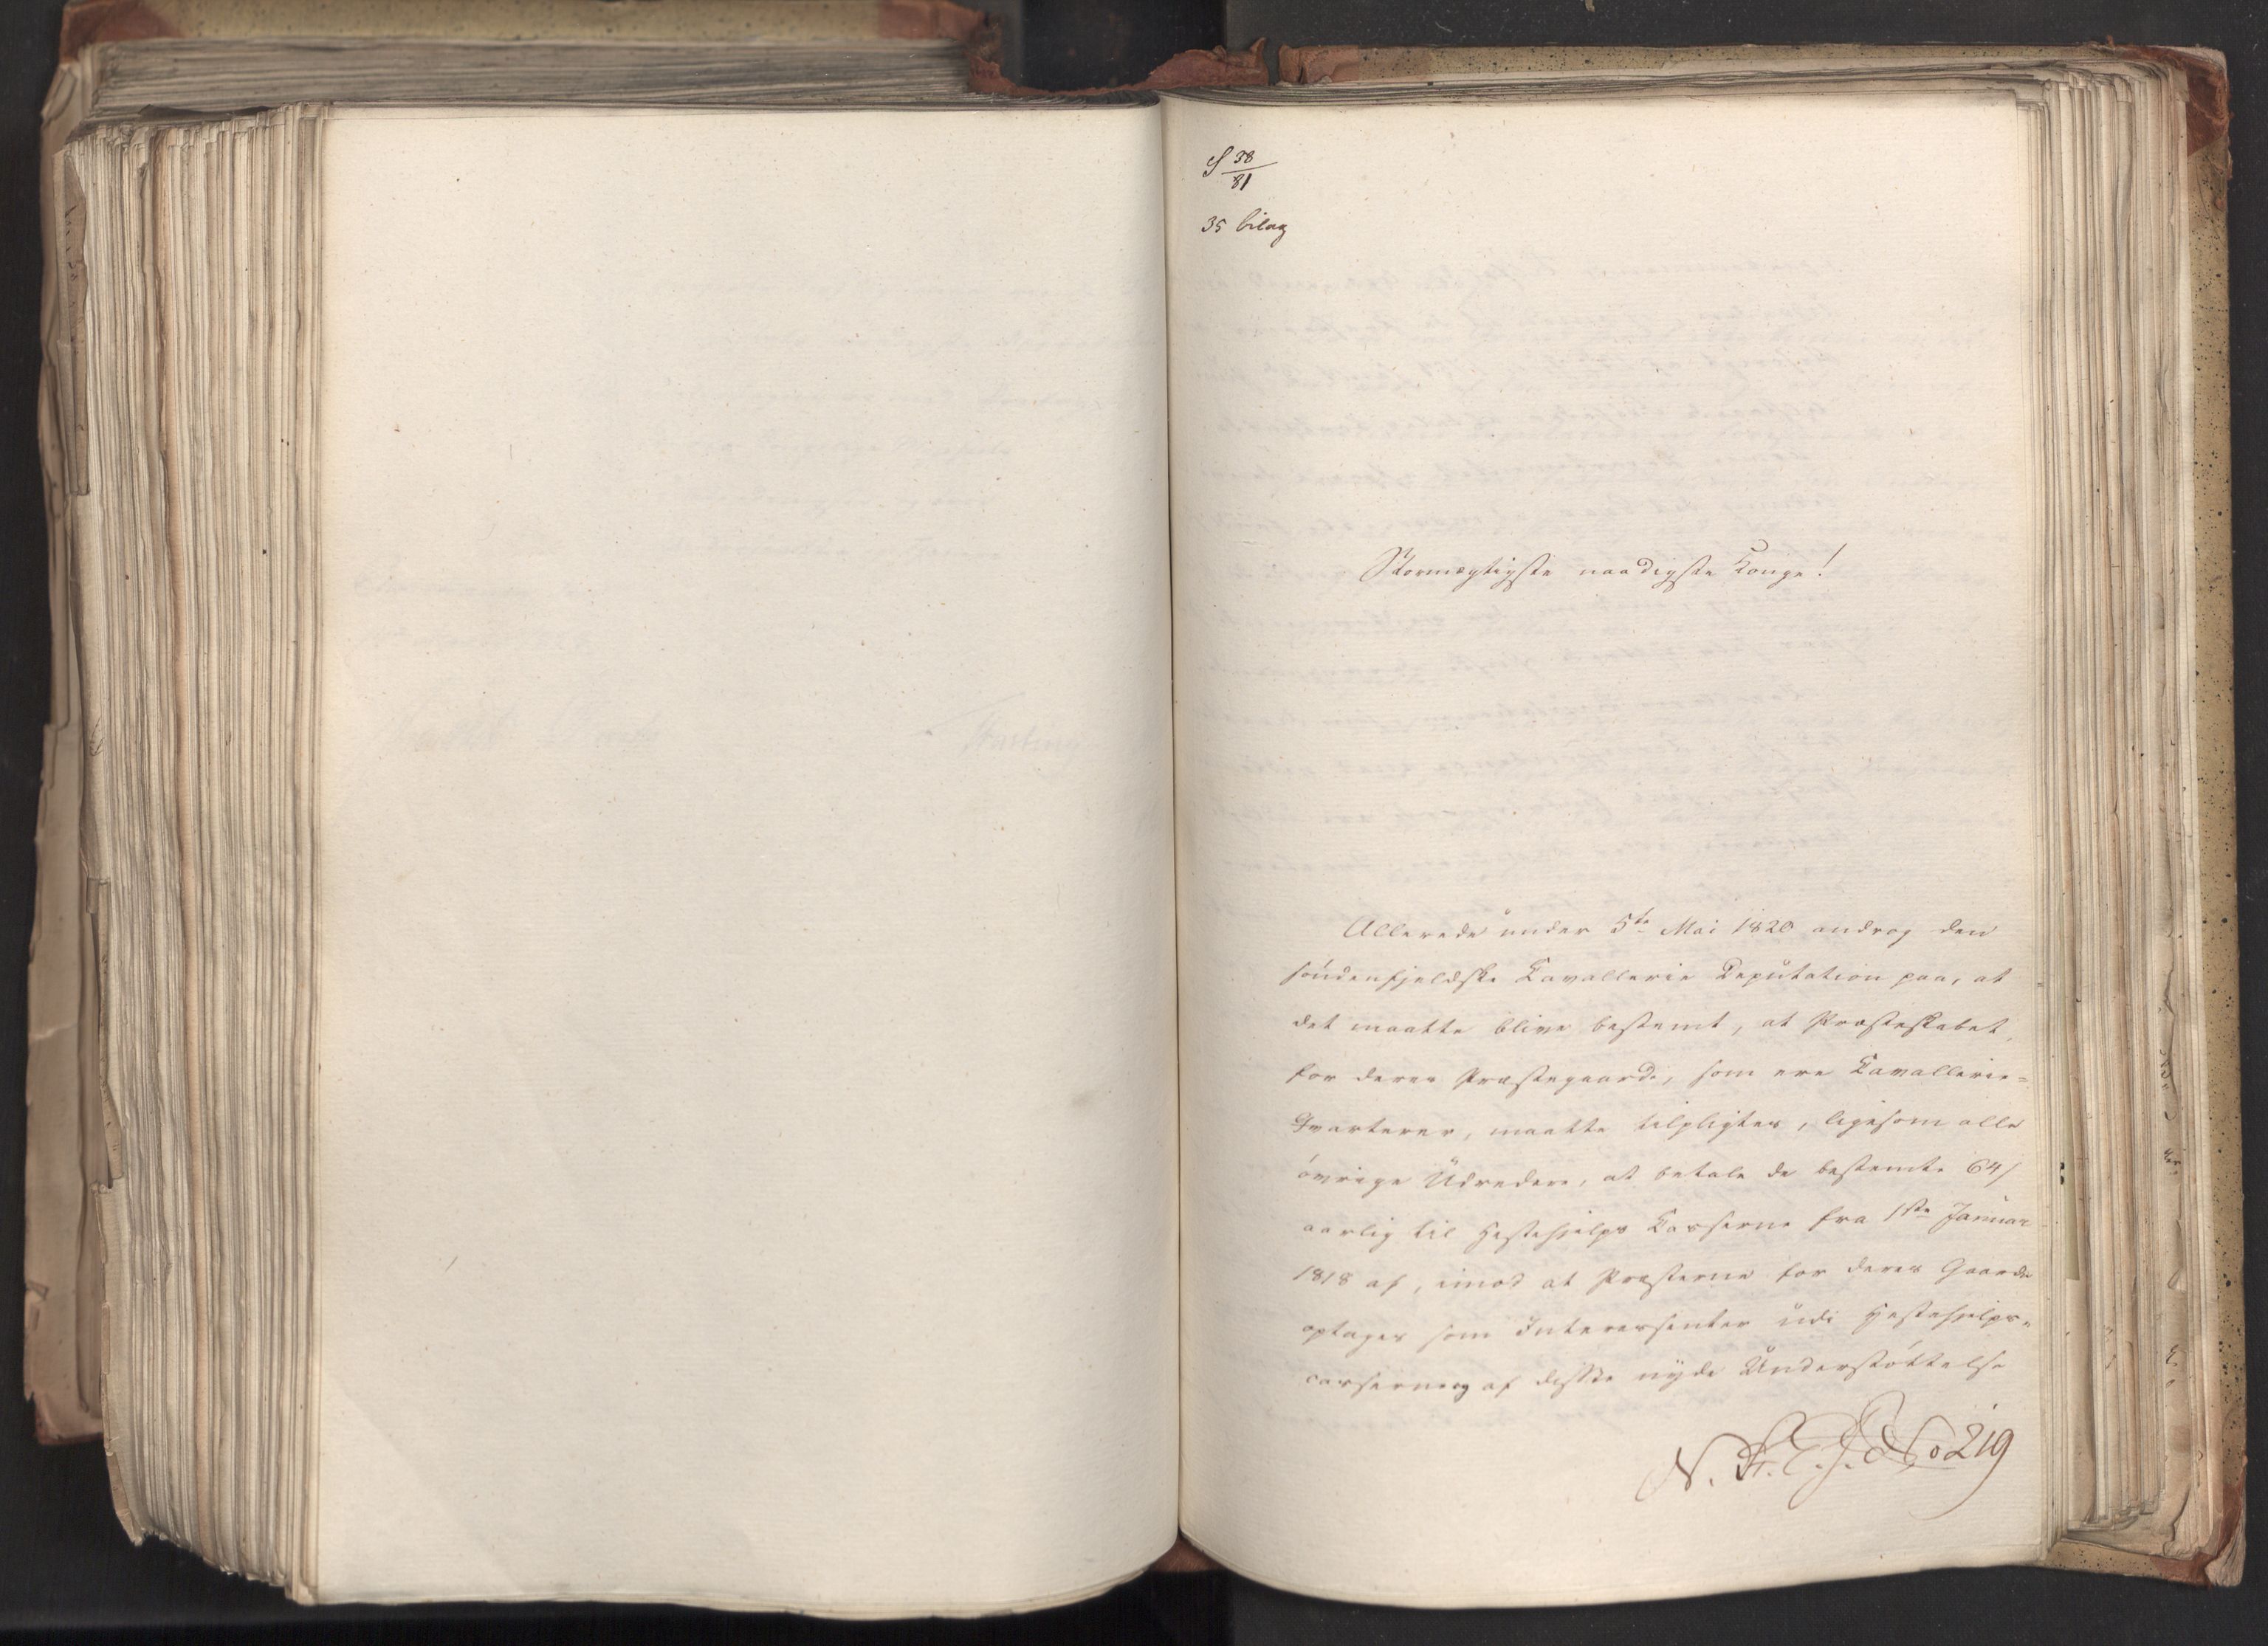 S 38/81
35 bilag
Stormægtigste naadigste Konge!
Allerede under 5te Mai 1820 androg den
søndenfjeldske Cavallerie Deputation paa, at
det maatte blive bestemt, at Præsteskabet,
for deres Præstegaarde, som ere Cavallerie=
Qvarterer, maatte tilpligtes, ligesom alle
øvrige Udredere, at betale de bestemte 64 s
aarlig til Hestehjelps Casserne fra 1ste Januar
1818 af, imod at Præsterne for deres Gaarde
optages som Interessenter udi Hestehjelps=
casserne og af disse nyde Understøttelse
No 219